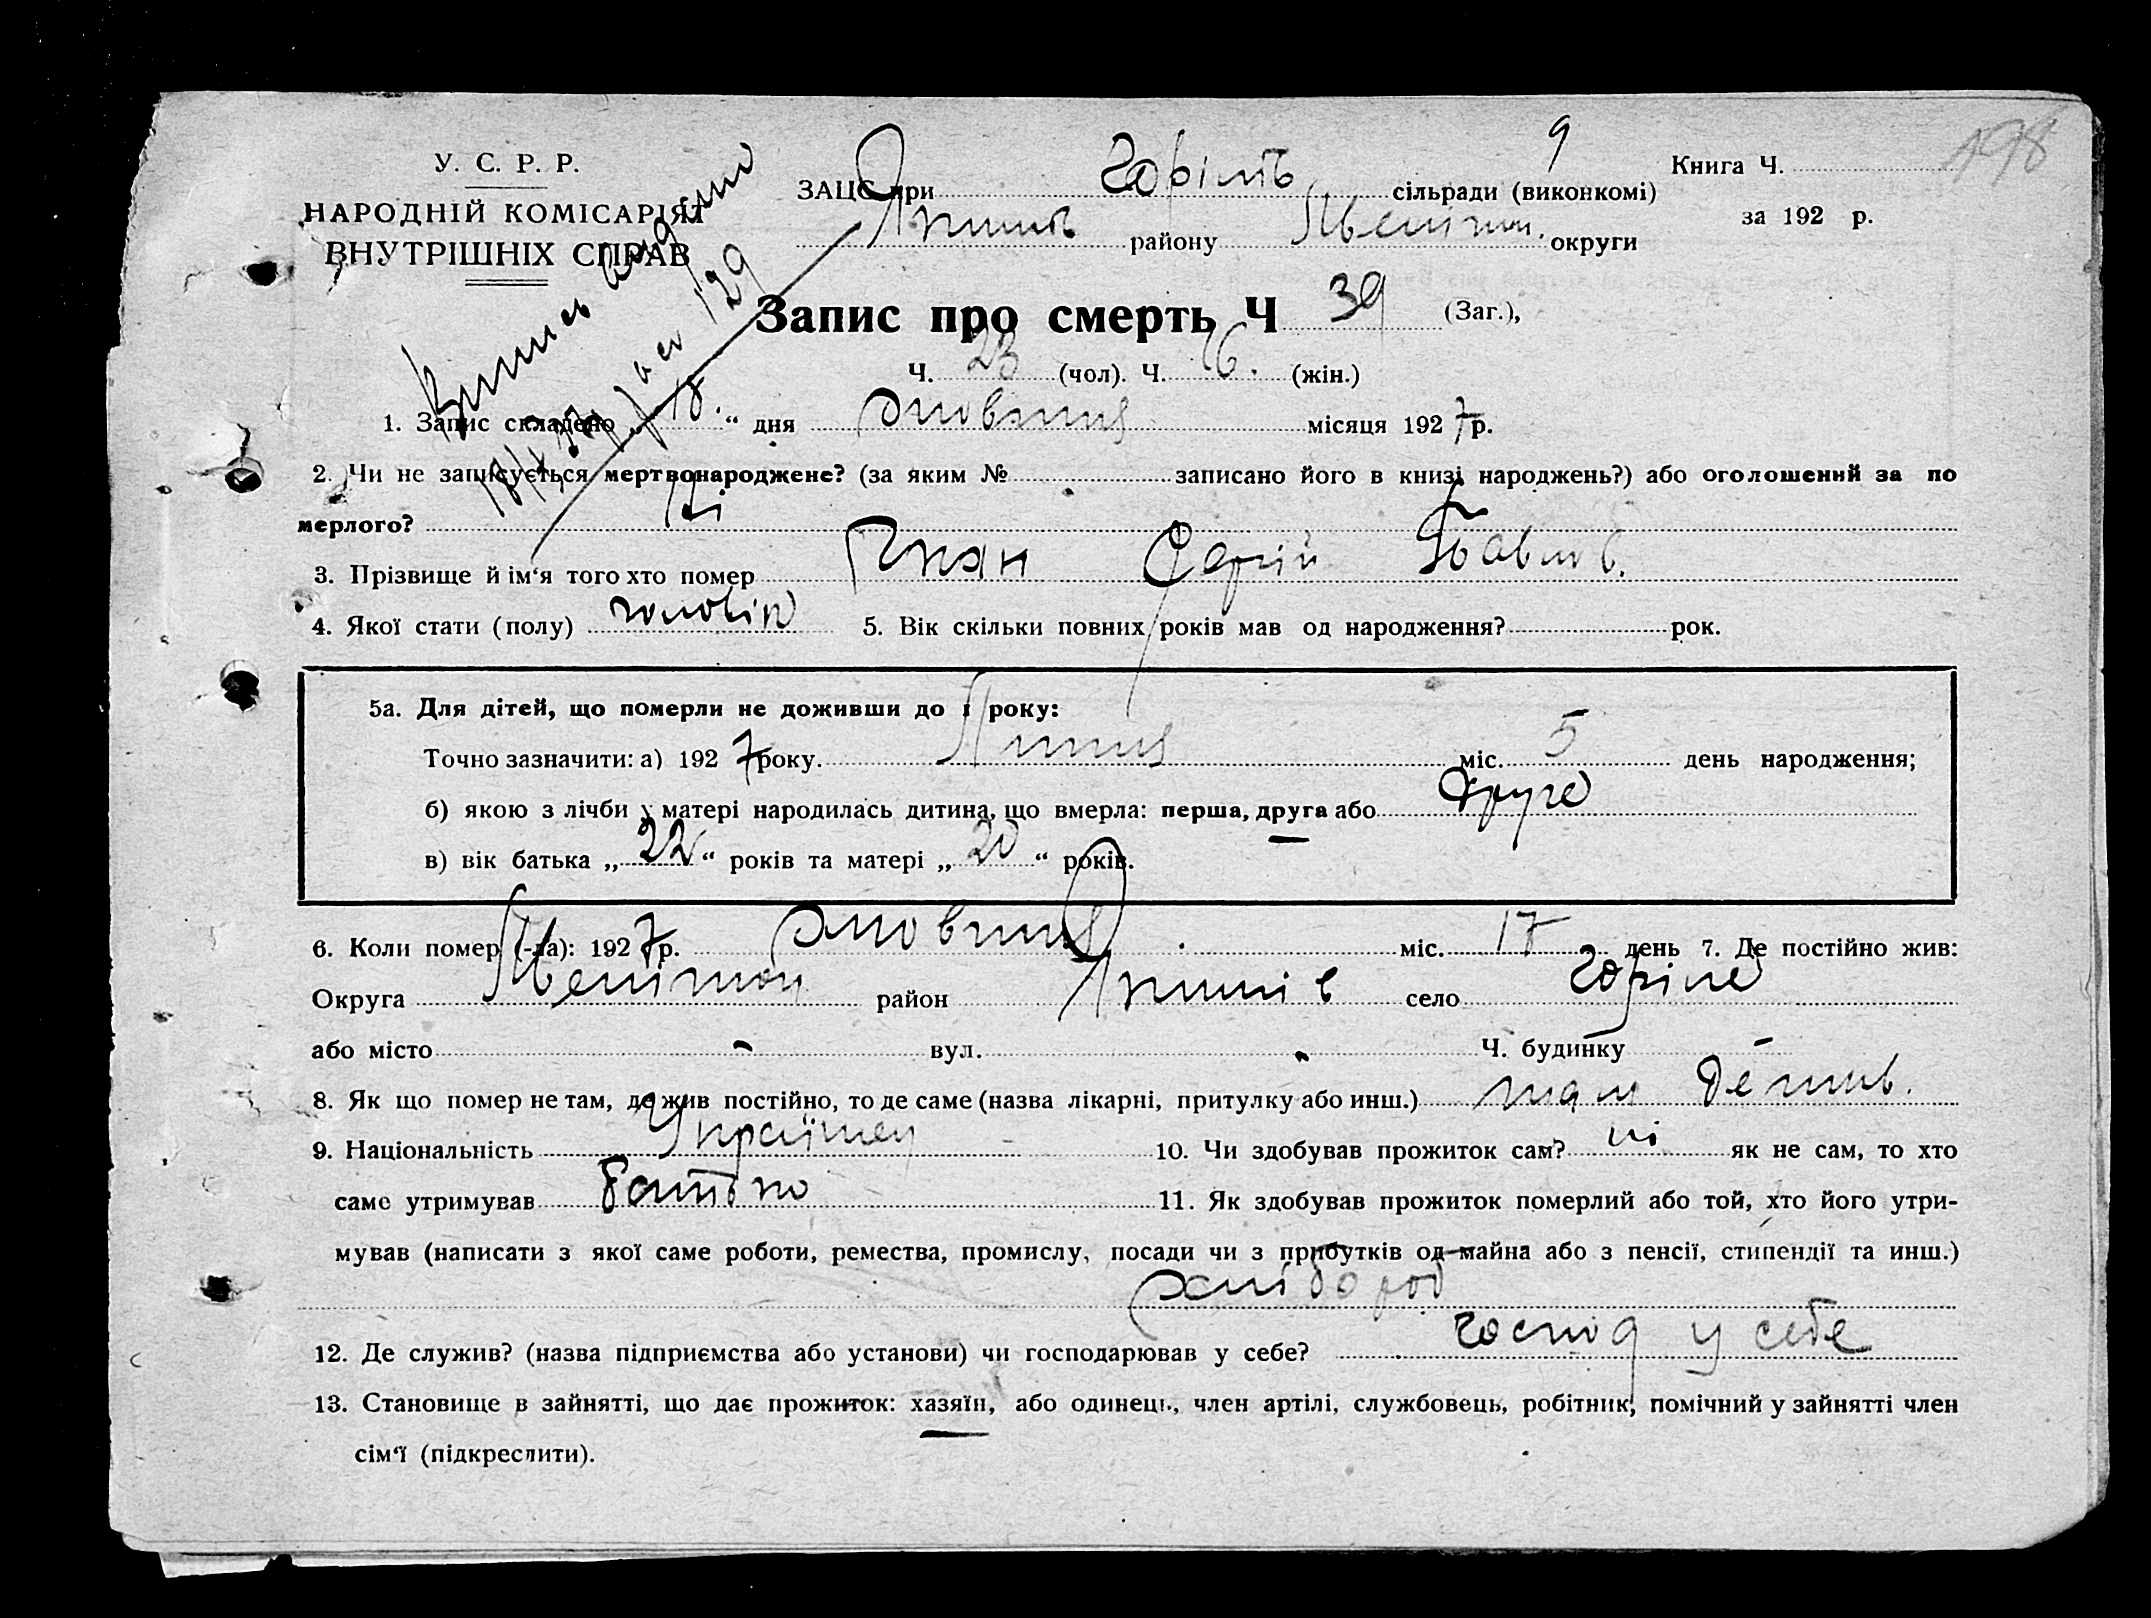 У. С. Р. Р.
НАРОДНІЙ КОМІСАРІЯТ
ВНУТРІШНІХ СПРАВ
9
198
ЗАЦС при Горільс сільради (виконкомі)
району округи
Книга Ч.
за 192 р.
Запис про смерть Ч 39 (Заг.),
Ч. 23 (чол). Ч. 16. (жін.)
1. Запис складено „ 18. “ дня жовтня місяця 1927 р.
2. Чи не записується мертвонароджене? (за яким № записано його в книзі народжень?) або оголошений за по
мерлого? Ні
3. Прізвище й ім‘я того хто помер Сергій Павлов.
4. Якої стати (полу) чоловік 5. Вік скільки повних років мав од народження? рок.
5а. Для дітей, що померли не доживши до 1 року:
Точно зазначити: а) 1927 року. Липня міс. 5 день народження;
б) якою з лічби у матері народилась дитина, що вмерла: перша, друга або друге
в) вік батька „ 22 “ років та матері „ 20 “ років.
6. Коли помер (-ла): 1927 р. жовтня міс. 17 день 7. Де постійно жив:
Округа район село Горіле
або місто - вул. - Ч. будинку -
8. Як що помер не там, де жив постійно, то де саме (назва лікарні, притулку або инш.) там де жив.
9. Національність Українец 10. Чи здобував прожиток сам? ні як не сам, то хто
саме утримував батько 11. Як здобував прожиток померлий або той, хто його утри-
мував (написати з якої саме роботи, ремества, промислу, посади чи з прибутків од майна або з пенсії, стипендії та инш.)
хлібороб
12. Де служив? (назва підприємства або установи) чи господарював у себе? господ у себе
13. Становище в зайнятті, що дає прожиток: хазяїн, або одинець, член артілі, службовець, робітник, помічний у зайнятті член
сім‘ї (підкреслити).